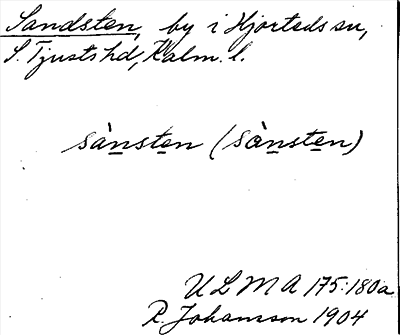 Sandsten, by i Hjorteds sn,
S. Tjusts hd, Kalm. l.
sànsten (sànsten)
ULMA 175:180a
R. Johansson 1904